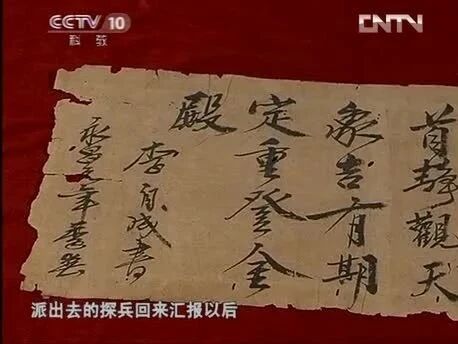 CCTV 10
科教
CNTV
首静觀天
象吉有期
定重登金
殿
李自成書
永昌元年
派出去的探兵回来汇报以后